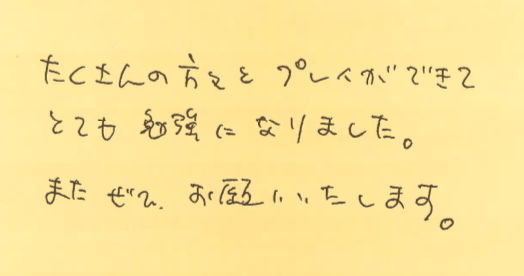 たくさんの方々とプレイができて
とても勉強になりました。
またぜひ、お願いいたします。